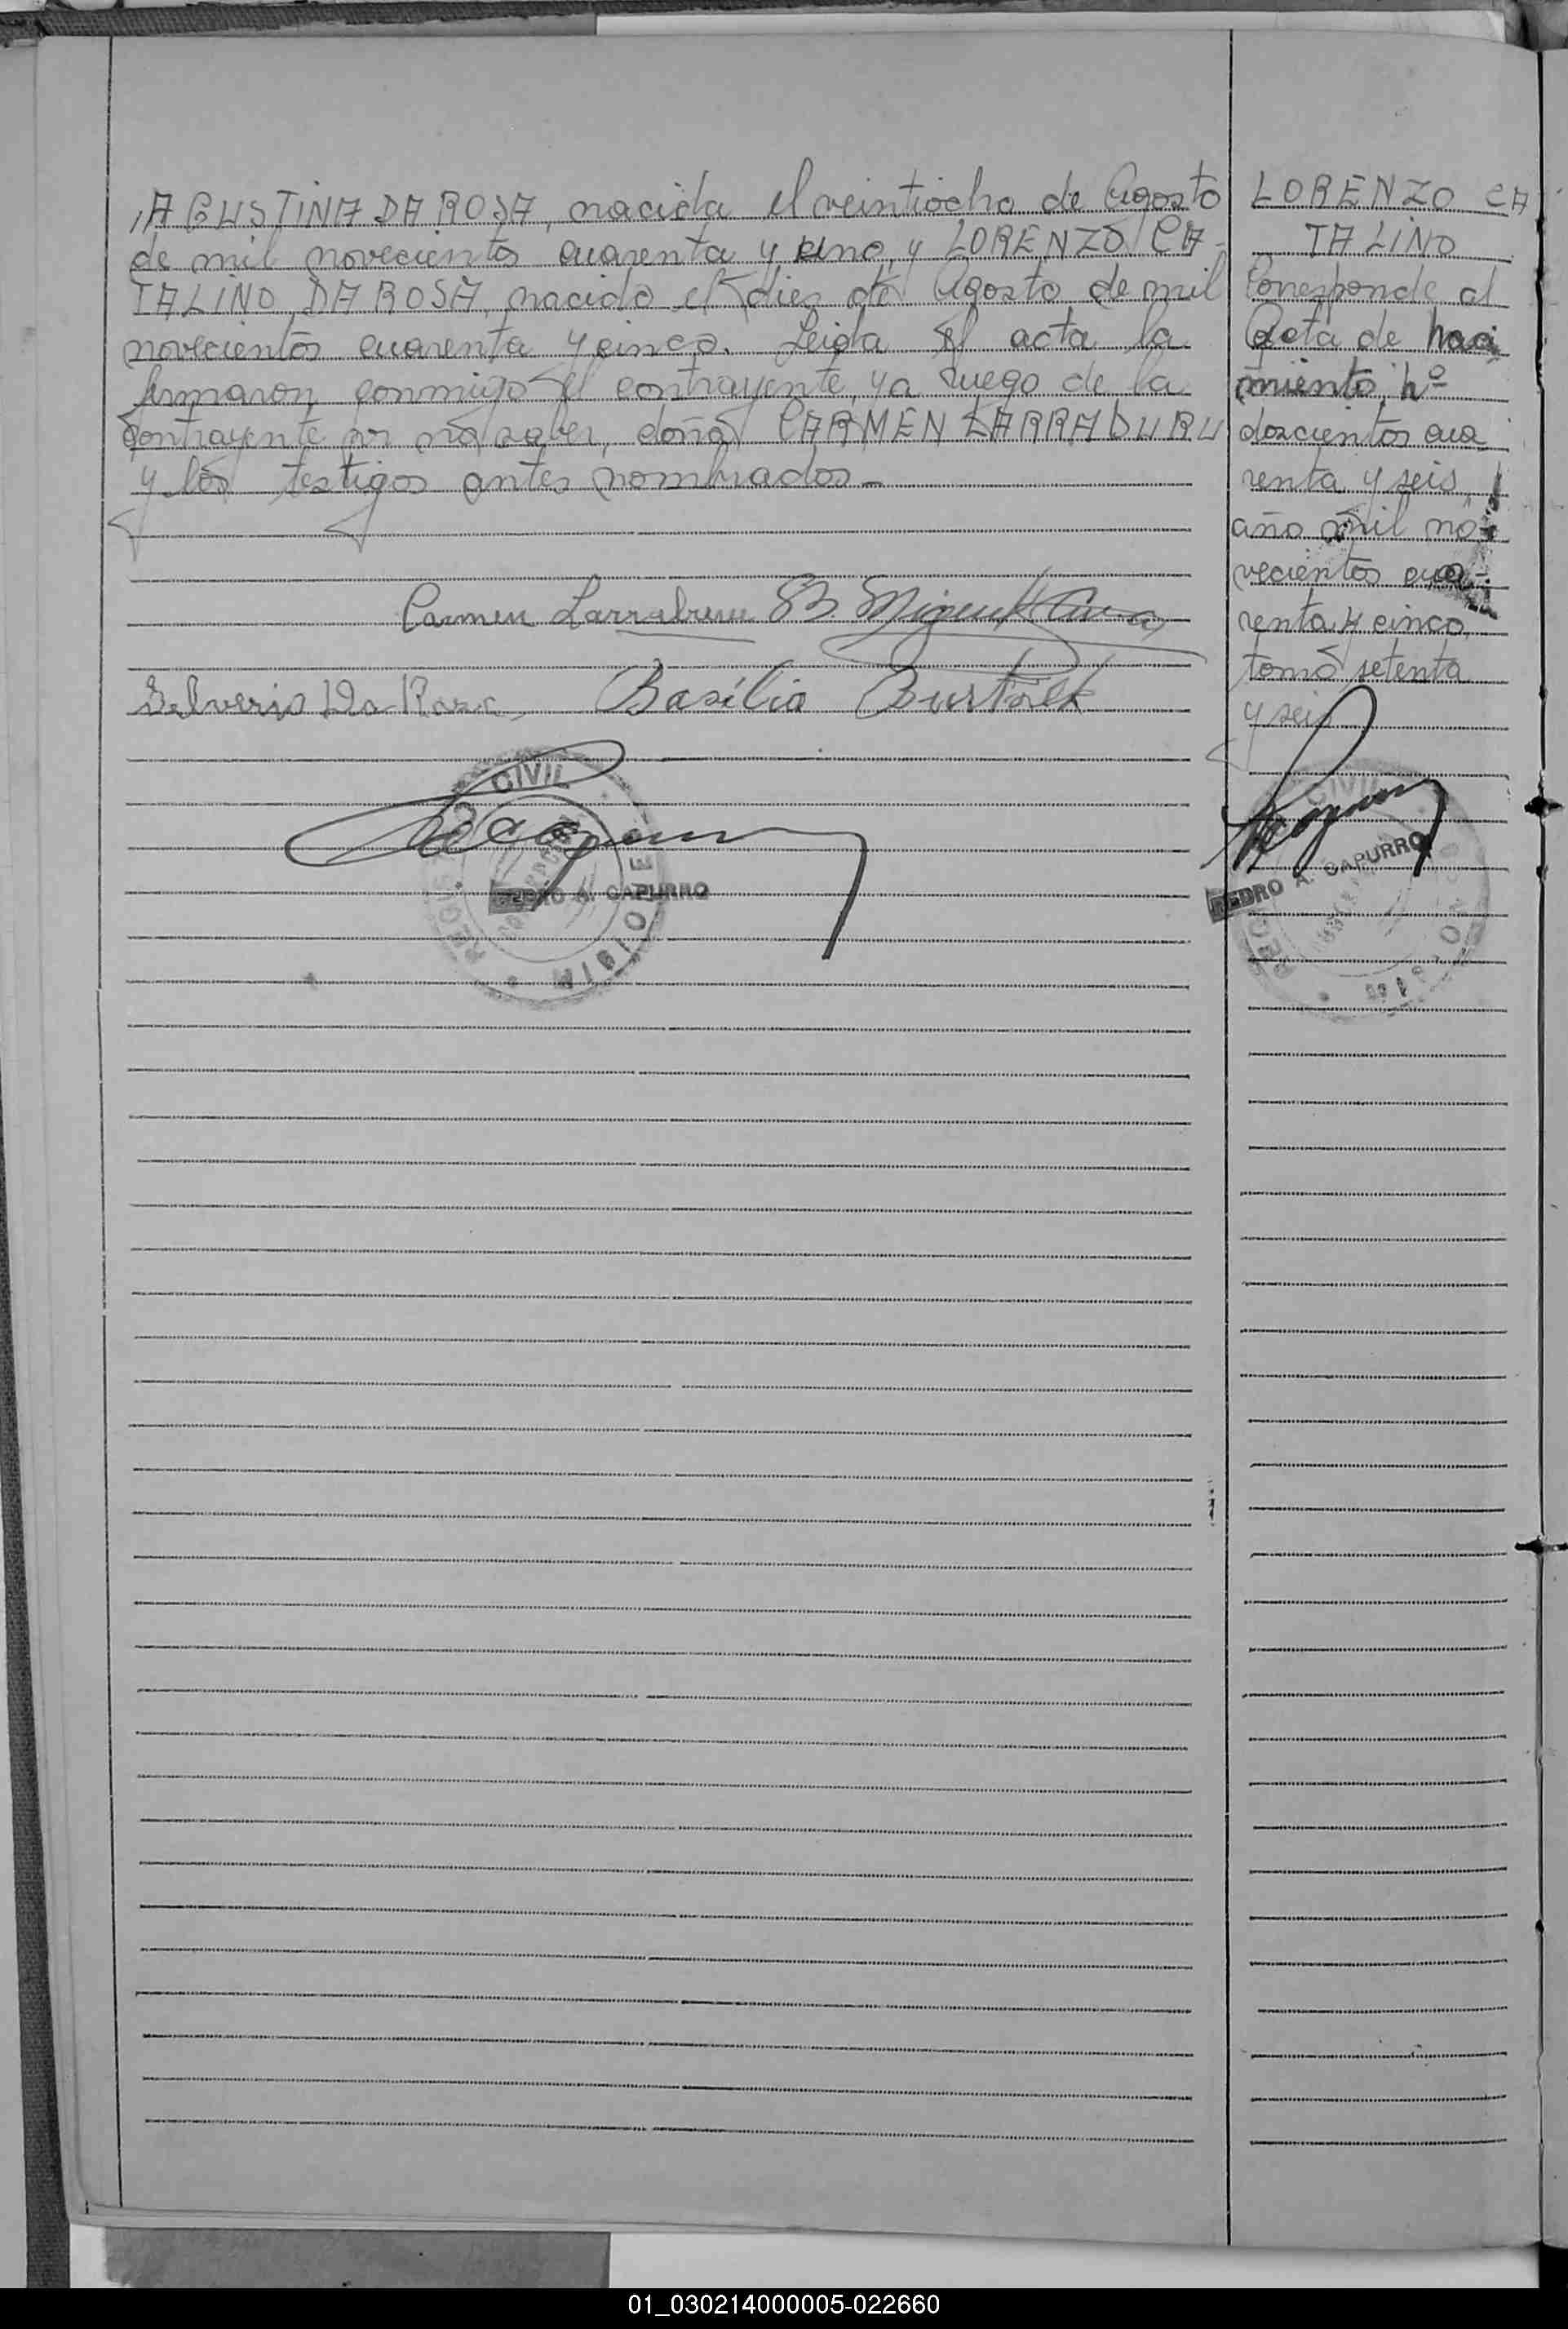 AGUSTINA DA ROSA, nacida el veintiocho de Agosto
de mil novecientos cuarenta y uno, y LORENZO CA-
TALINO DA ROSA, nacido el diez de Agosto de mil
novecientos cuarenta y cinco. Leida el acta la
firmaron conmigo el contrayente, y a ruego de la
contrayente por no saber, doña CARMEN LARRABURU
y los testigos antes nombrados.-
Carmen Larraburu B. Miguel
Silverio Da Rosa, Basilio
CIVIL
PEDRO A. CAPURRO
LORENZO CA
TALINO
Corresponde al
Acta de naci
miento, nº
doscientos cua
renta y seis,
año mil no-
vecientos cua-
renta y cinco,
tomo setenta
y seis
CIVIL
PEDRO A. CAPURRO
01_030214000005-022660